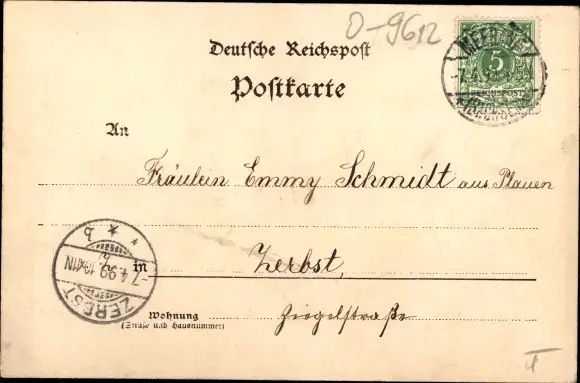 O-9612
Deutsche Reichspost
Postkarte
MEERANE
5
REICHSPOST
An
Fräulein Emmy Schmidt aus Plauen
in Zerbst,
ZERBST
-7.4.99
b
Wohnung
(Straße und Hausnummer)
Ziegelstraße